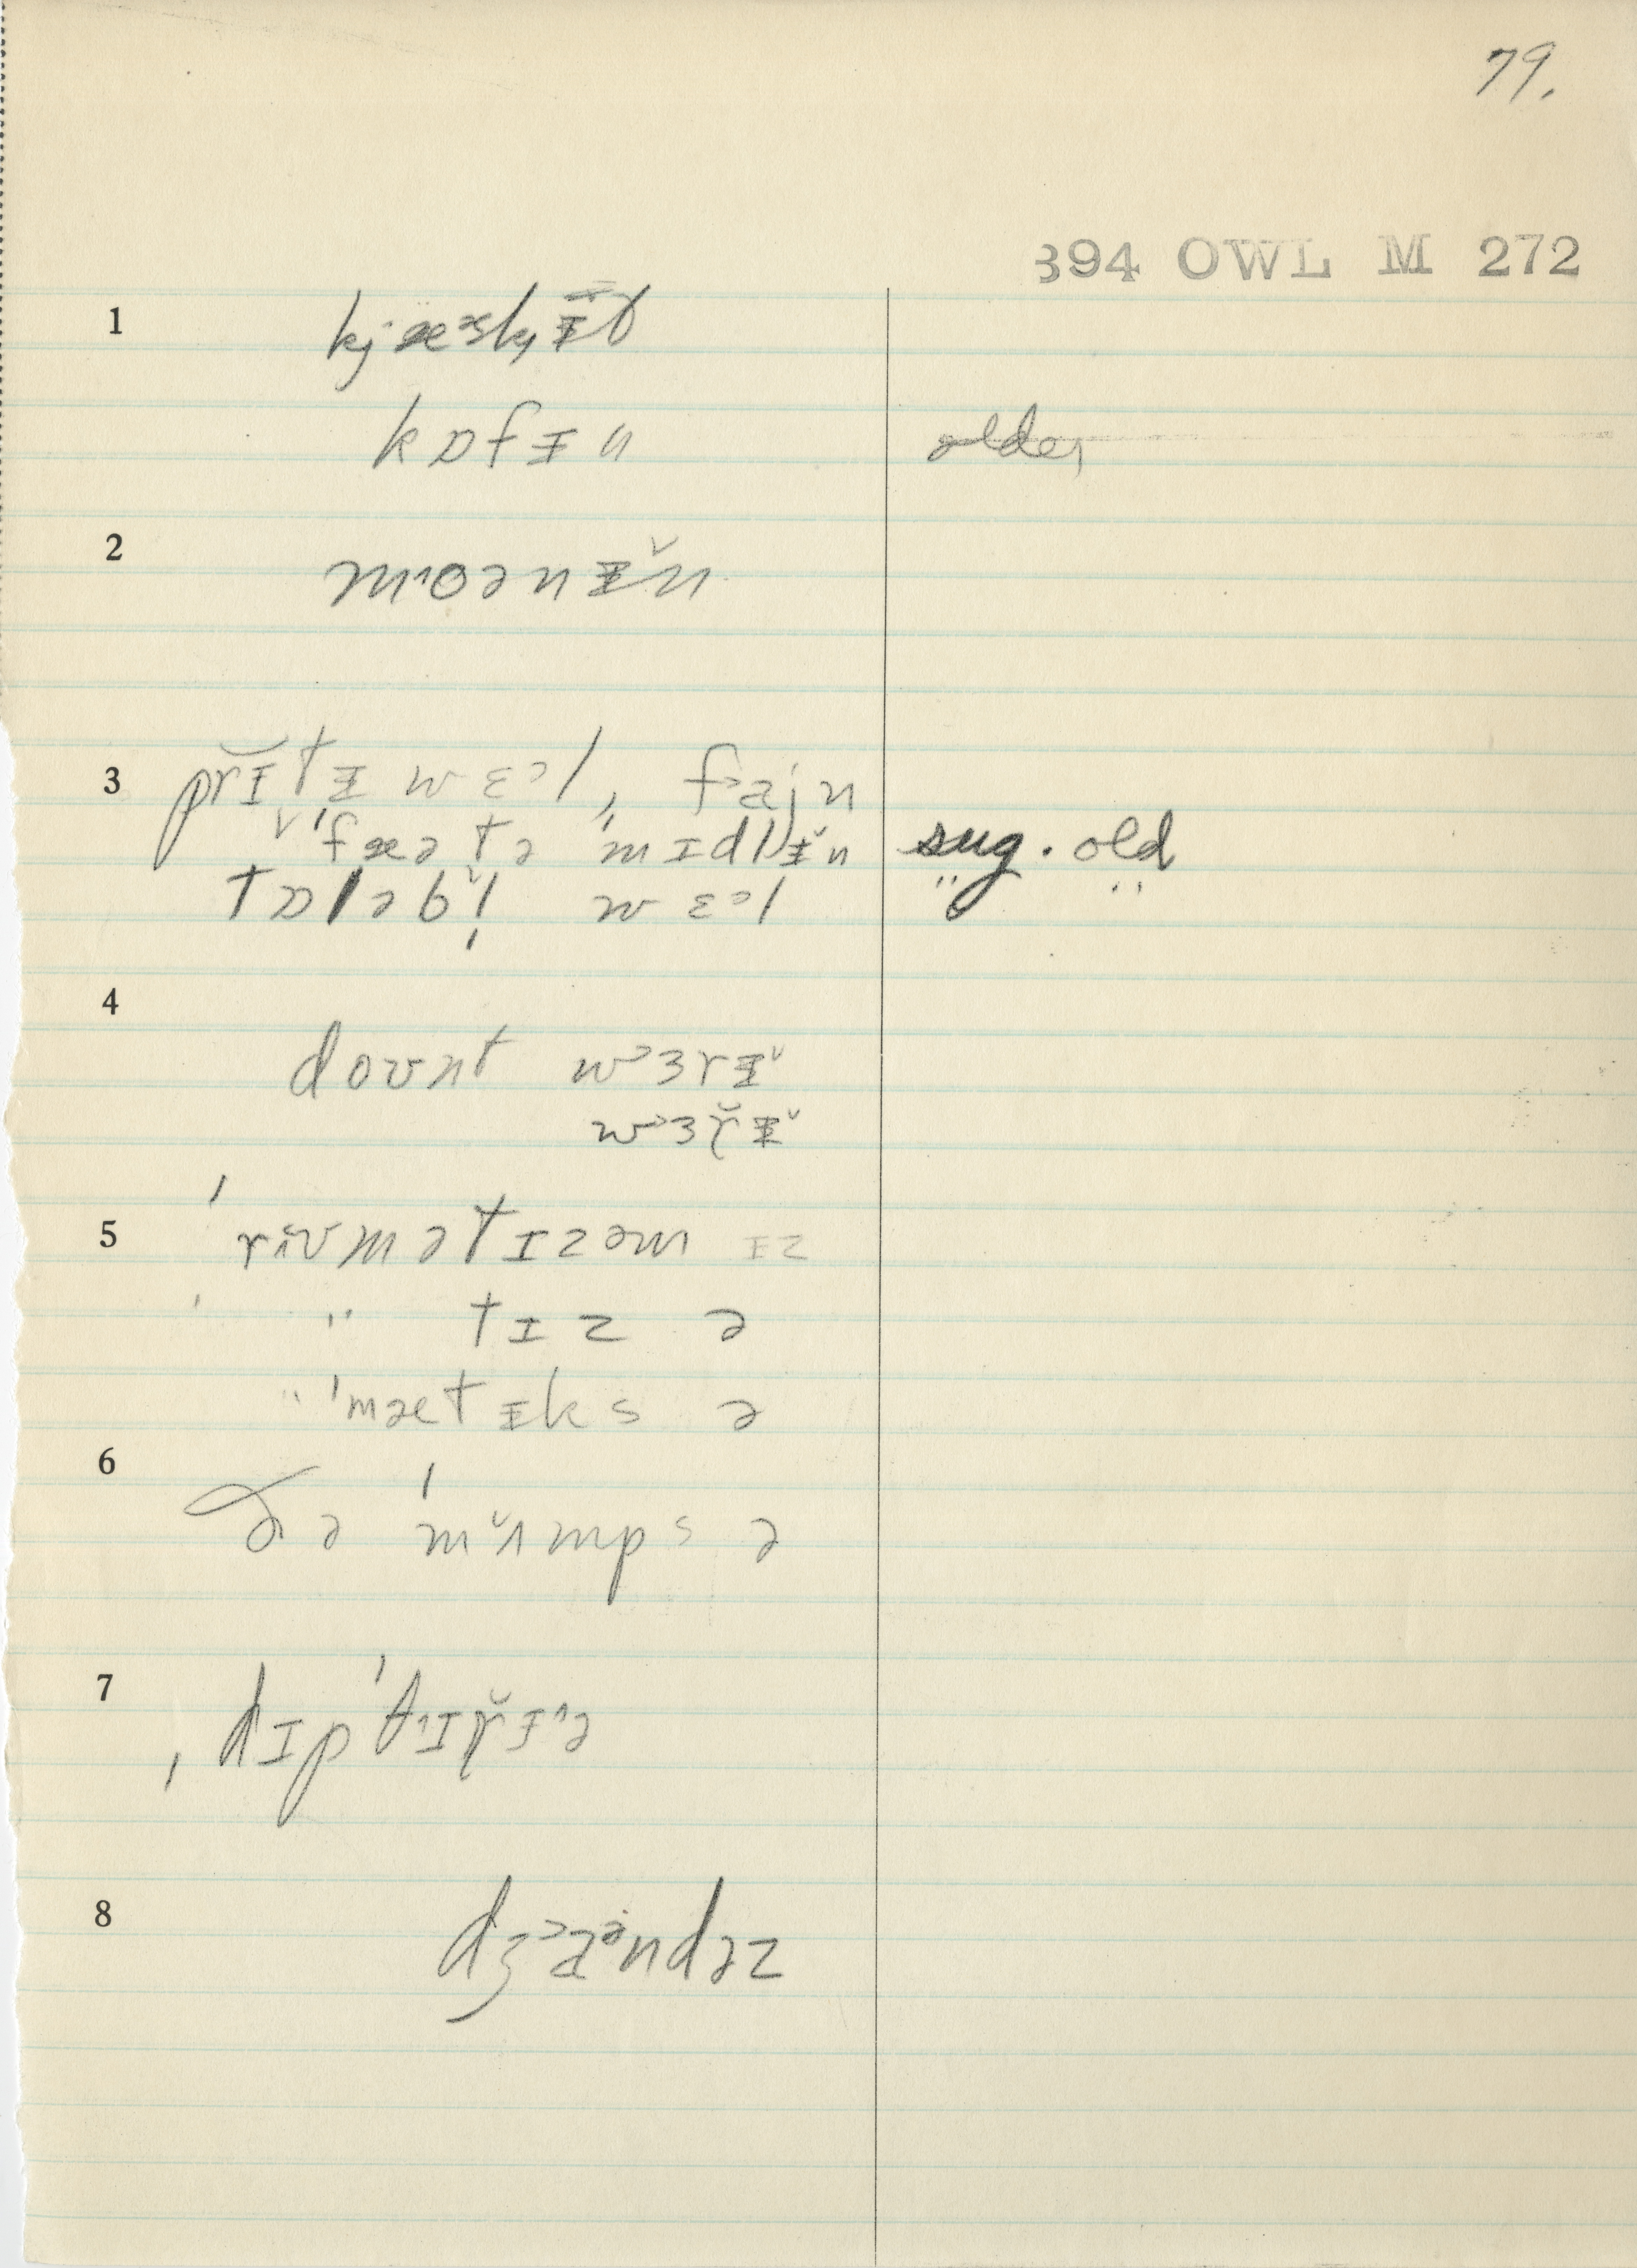 79.
394 OWL M 272
1 kj æᵊsk̟ᵻ̄t
kɒfᵻn older
2 mˈoənᵻ̆n
3 prɪ̆tᵻ wɛᵊl, fᵊajn
ˈfæətə ˈmɪdlᵻ̆n sug. old
tɒləbl̩ wɛᵊl " "
4 doʊnt wᵊɜrᵻ̆
wᵊɜɾ̆ᵻ̆
5 ˈriʊmətɪzəm ɪz
" tɪz ə
" ˈmætᵻks ə
6 ðə ˈmʌ̆mps ə
7 ˌdɪpˈtɪɾ̆ᵻə
8 dʒᵊaᵊndəz